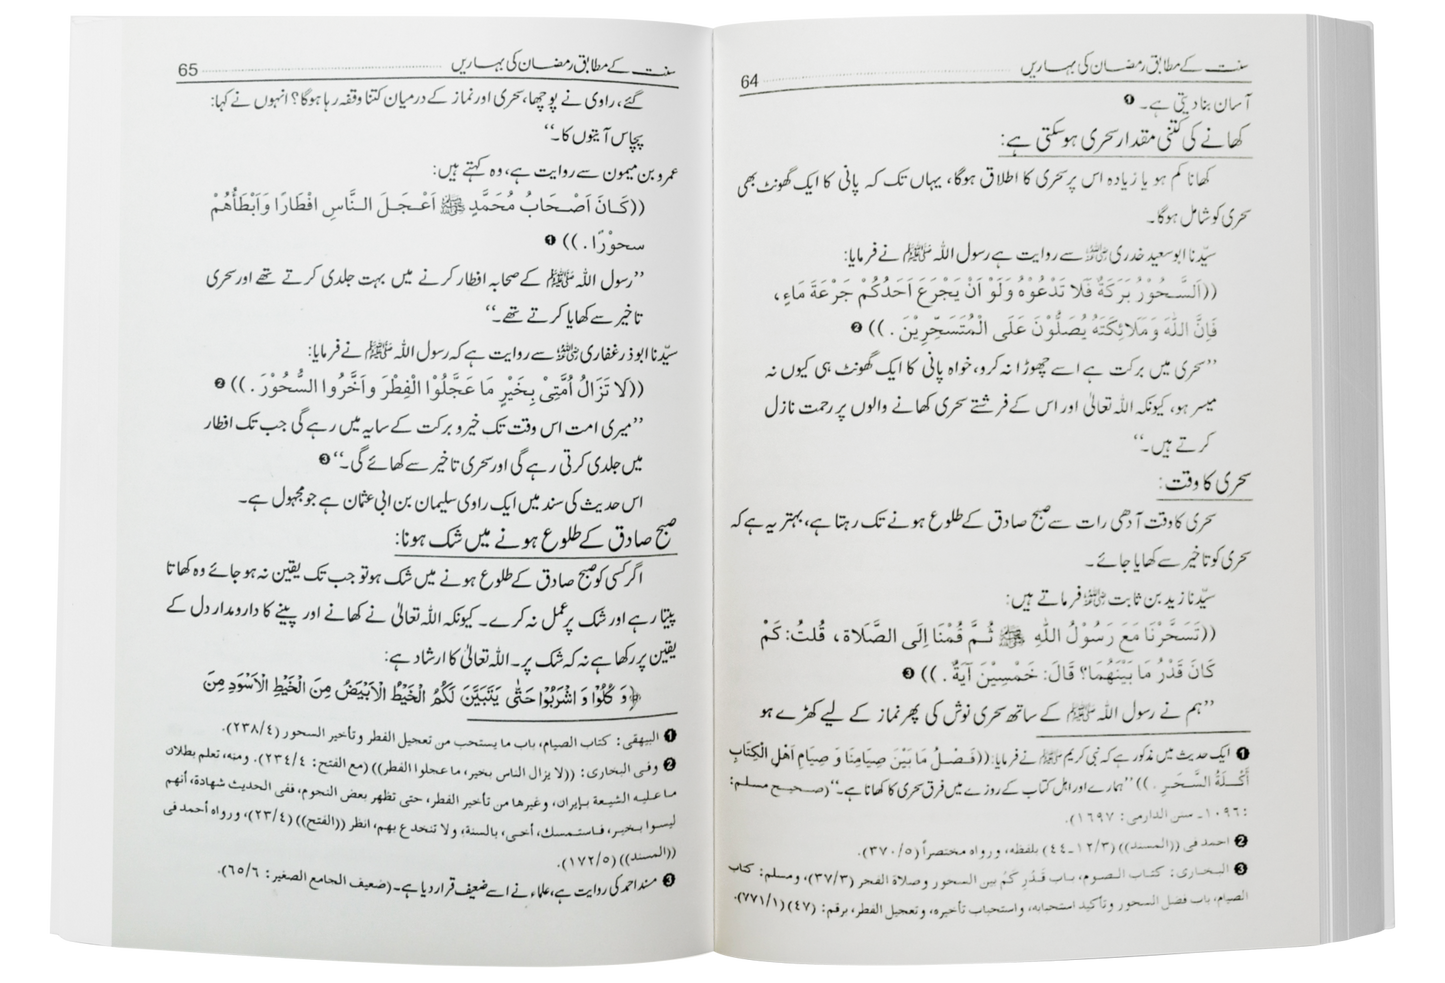 سنت کے مطابق رمضان کی بہاریں ........ 64
آسان بنا دیتی ہے۔ ❶
کھانے کی کتنی مقدار سحری ہوسکتی ہے:
کھانا کم ہو یا زیادہ اس پر سحری کا اطلاق ہوگا، یہاں تک کہ پانی کا ایک گھونٹ بھی
سحری کو شامل ہوگا۔
سیّدنا ابوسعید خدری رضی اللہ عنہ سے روایت ہے رسول اللہ ﷺ نے فرمایا:
((اَلسَّحُوْرُ بَرَكَةٌ فَلَا تَدْعُوْهُ وَلَوْ اَنْ يَجْرَعَ اَحَدُكُمْ جَرْعَةَ مَاءٍ،
فَاِنَّ اللّٰهَ وَمَلَائِكَتَهُ يُصَلُّوْنَ عَلَى الْمُتَسَحِّرِيْنَ.)) ❷
’’سحری میں برکت ہے اسے چھوڑا نہ کرو، خواہ پانی کا ایک گھونٹ ہی کیوں نہ
میسر ہو، کیونکہ اللہ تعالیٰ اور اس کے فرشتے سحری کھانے والوں پر رحمت نازل
کرتے ہیں۔‘‘
سحری کا وقت:
سحری کا وقت آدھی رات سے صبح صادق کے طلوع ہونے تک رہتا ہے، بہتر یہ ہے کہ
سحری کو تاخیر سے کھایا جائے۔
سیّدنا زید بن ثابت رضی اللہ عنہ فرماتے ہیں:
((تَسَحَّرْنَا مَعَ رَسُوْلُ اللّٰهِ ﷺ ثُمَّ قُمْنَا اِلَى الصَّلَاة، قُلتُ: كَمْ
كَانَ قَدْرُ مَا بَيْنَهُمَا؟ قَالَ: خَمْسِيْنَ آيَةٌ.)) ❸
’’ہم نے رسول اللہ ﷺ کے ساتھ سحری نوش کی پھر نماز کے لیے کھڑے ہو
❶ ایک حدیث میں مذکور ہے کہ نبی کریم ﷺ نے فرمایا: ((فَصْلُ مَا بَيْنَ صِيَامِنَا وَ صِيَامِ اَهْلِ الْكِتَابِ
أَكْلَةُ السَّحَرِ.)) ’’ہمارے اور اہل کتاب کے روزے میں فرق سحری کا کھانا ہے۔‘‘ (صحیح مسلم:
١٠٩٦۔ سنن الدارمی: ١٦٩٧).
❷ احمد فی ((المسند)) (١٢/٣۔٤٤) بلفظہ، ورواہ مختصراً (٣٧٠/٥).
❸ البخاری: کتاب الصوم، باب قَدْرِ كَمْ بین السحور وصلاۃ الفجر (٣٧/٣)، ومسلم: کتاب
الصیام، باب فضل السحور وتأکید استحبابہ، واستحباب تأخیرہ، وتعجیل الفطر، برقم: (٤٧) (٧٧١/١).
سنت کے مطابق رمضان کی بہاریں ........ 65
گئے، راوی نے پوچھا، سحری اور نماز کے درمیان کتنا وقفہ رہا ہوگا؟ انہوں نے کہا:
پچاس آیتوں کا۔‘‘
عمرو بن میمون سے روایت ہے، وہ کہتے ہیں:
((كَانَ اَصْحَابُ مُحَمَّدٍ ﷺ اَعْجَلَ النَّاسِ افْطَارًا وَاَبْطَأُهُمْ
سحوْرًا.)) ❶
’’رسول اللہ ﷺ کے صحابہ افطار کرنے میں بہت جلدی کرتے تھے اور سحری
تاخیر سے کھایا کرتے تھے۔‘‘
سیّدنا ابوذر غفاری رضی اللہ عنہ سے روایت ہے کہ رسول اللہ ﷺ نے فرمایا:
((لَا تَزَالُ اُمَّتِىْ بِخَيْرٍ مَا عَجَّلُوْا الْفِطْرَ واَخَّرُوا السُّحُوْرَ.)) ❷
’’میری امت اس وقت تک خیر و برکت کے سایہ میں رہے گی جب تک افطار
میں جلدی کرتی رہے گی اور سحری تاخیر سے کھائے گی۔‘‘ ❸
اس حدیث کی سند میں ایک راوی سلیمان بن ابی عثمان ہے جو مجہول ہے۔
صبح صادق کے طلوع ہونے میں شک ہونا:
اگر کسی کو صبح صادق کے طلوع ہونے میں شک ہو تو جب تک یقین نہ ہو جائے وہ کھاتا
پیتا رہے اور شک پر عمل نہ کرے۔ کیونکہ اللہ تعالیٰ نے کھانے اور پینے کا دارومدار دل کے
یقین پر رکھا ہے نہ کہ شک پر۔ اللہ تعالیٰ کا ارشاد ہے:
﴿وَ كُلُوْا وَ اشْرَبُوْا حَتّٰى يَتَبَيَّنَ لَكُمُ الْخَيْطُ الْاَبْيَضُ مِنَ الْخَيْطِ الْاَسْوَدِ مِنَ
❶ البیھقی: کتاب الصیام، باب ما یستحب من تعجیل الفطر وتأخیر السحور (٢٣٨/٤).
❷ وفی البخاری: ((لا یزال الناس بخیر، ما عجلوا الفطر)) (مع الفتح: ٢٣٤/٤). ومنہ، تعلم بطلان
ما علیہ الشیعۃ بإیران، وغیرھا من تأخیر الفطر، حتی تظھر بعض النجوم، ففی الحدیث شھادۃ، أنھم
لیسوا بخیر، فاستمسک، أخی، بالسنۃ، ولا تنخدع بھم، انظر ((الفتح)) (٢٣/٤)، ورواہ أحمد فی
((المسند)) (١٧٢/٥).
❸ مسند احمد کی روایت ہے، علماء نے اسے ضعیف قرار دیا ہے۔ (ضعیف الجامع الصغیر: ٦٥/٦).